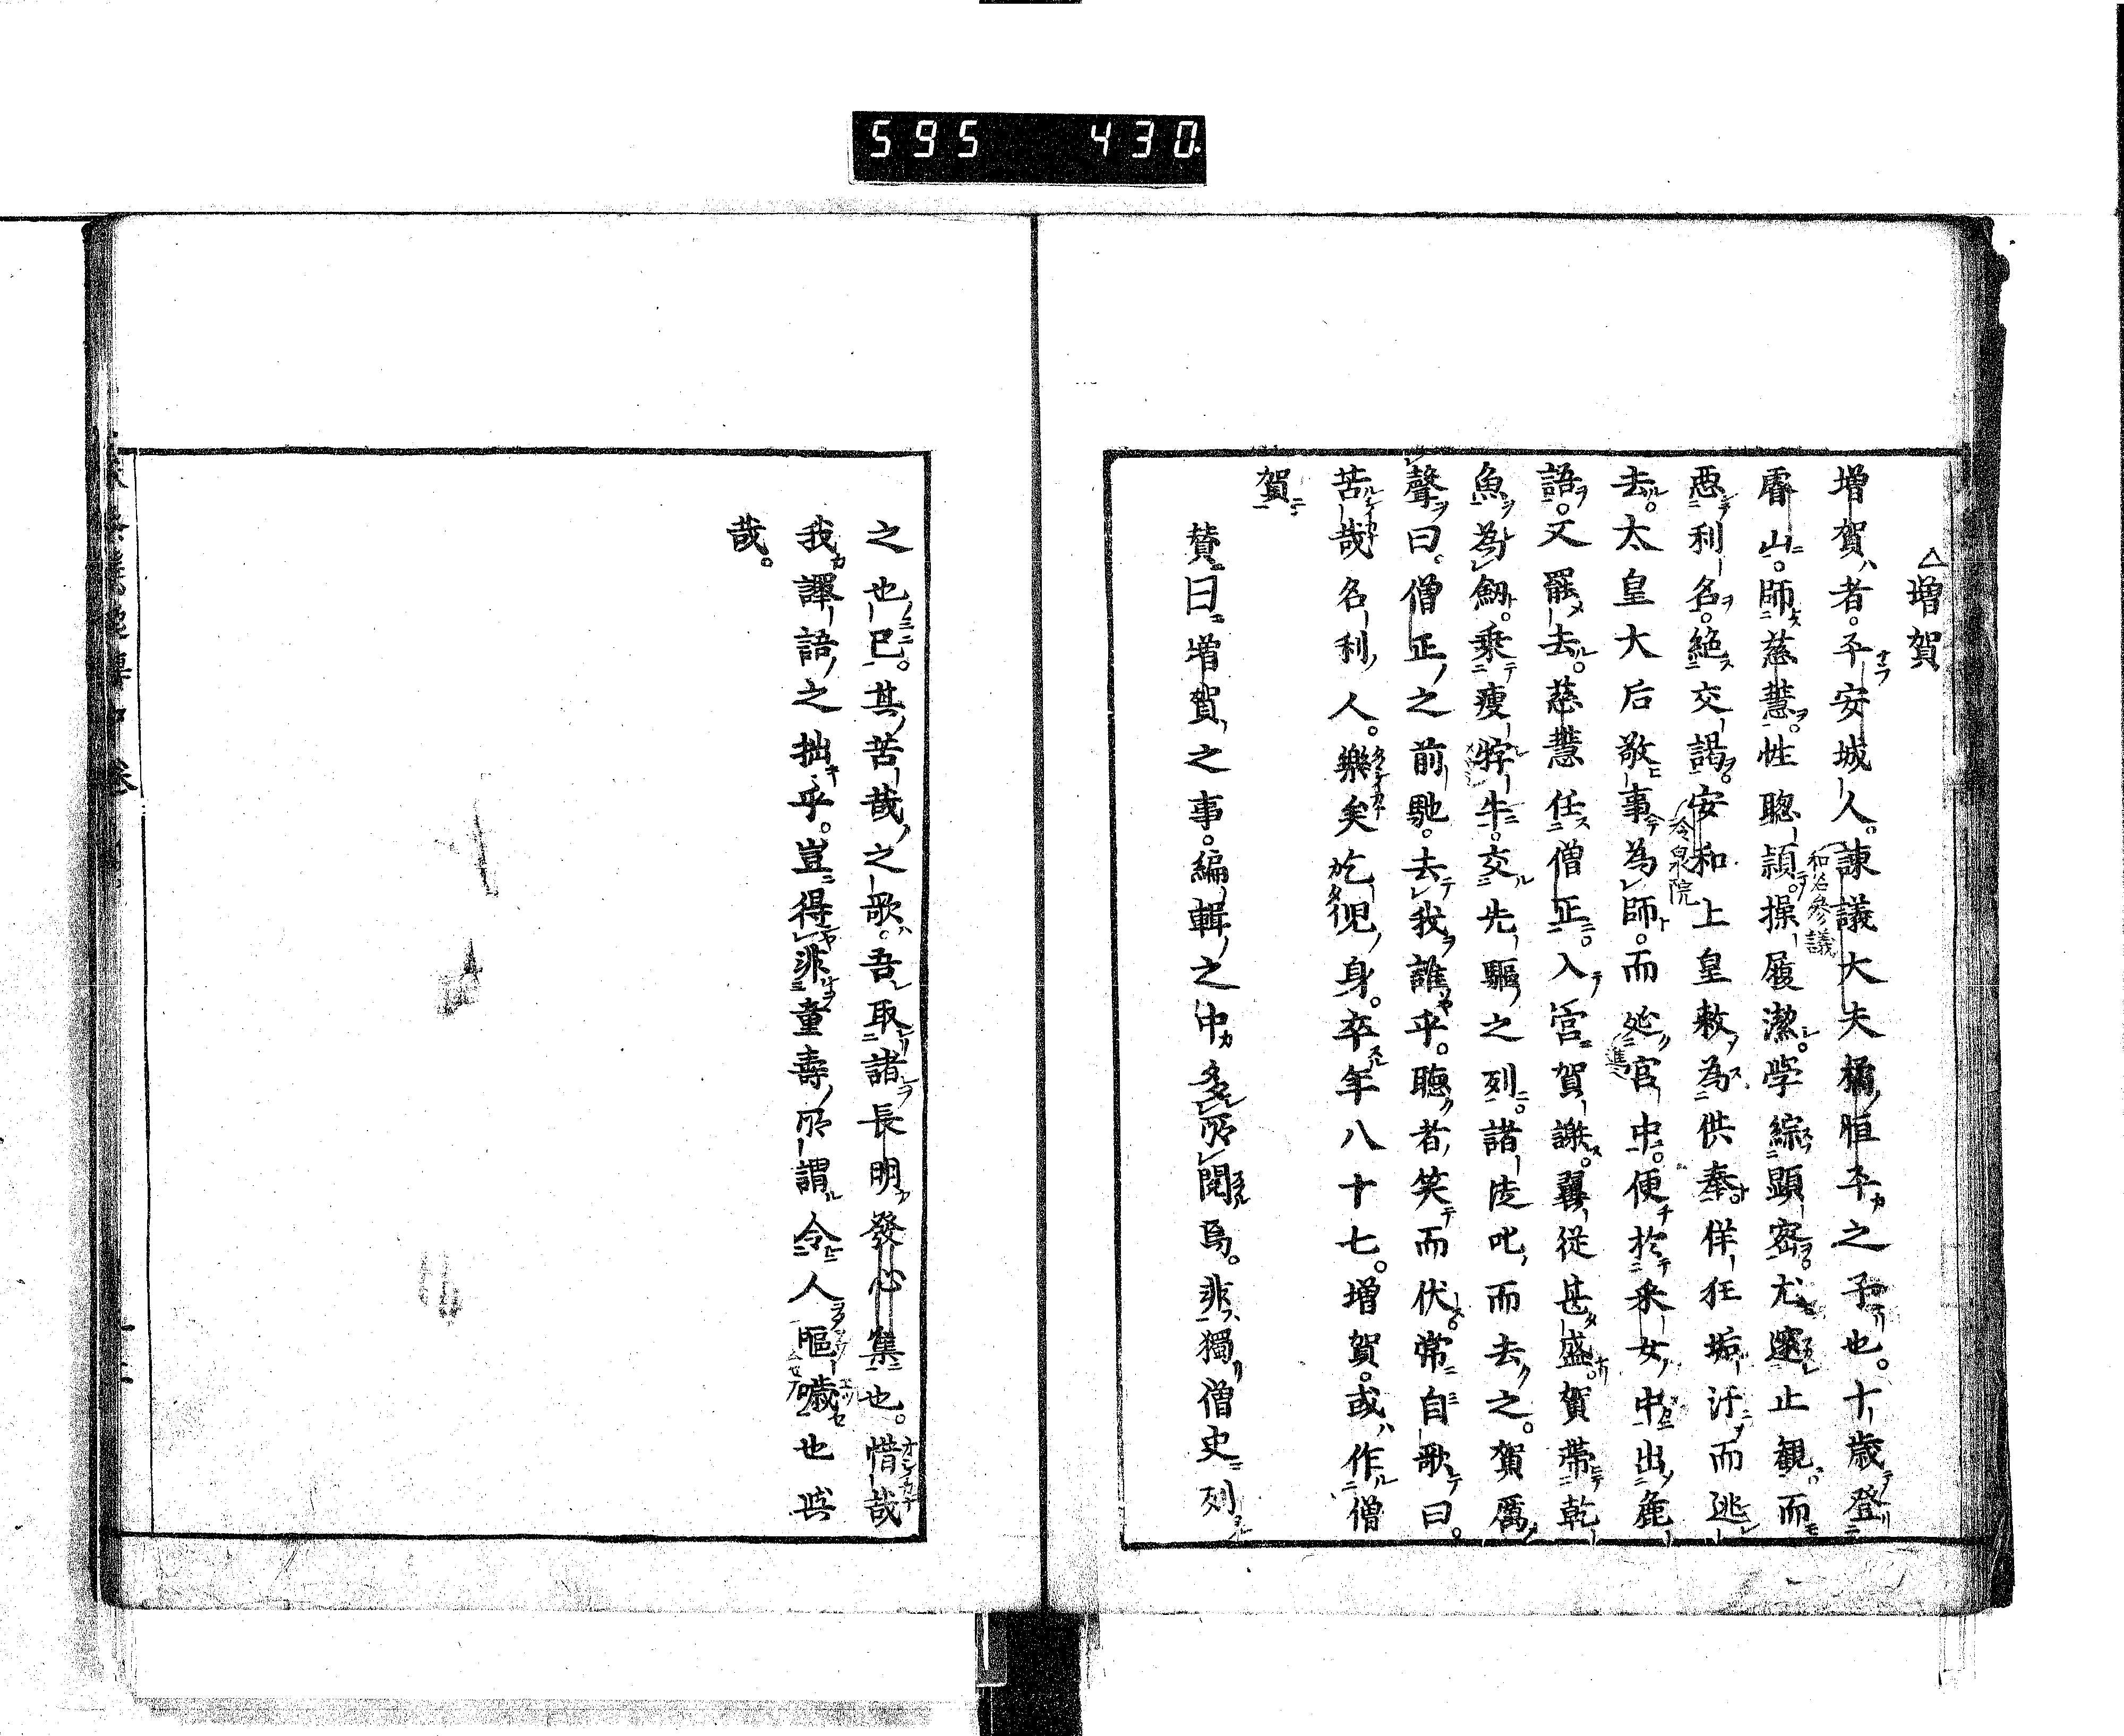 595 430
△増賀
増賀者。平安城人。諌議大夫橘恒平之子也。十歳登
睿山。師慈慧。性聰頴。操履潔。学綜顕密。尤邃止観。而
惡利名。絶交謁。安和上皇敕為供奉。佯狂垢汙而逃
去。太皇大后敬事為師。而延宮中。便於釆女中出麁
語。又罷去。慈慧任僧正。入宮賀謝。翼從甚盛。賀帶乾
魚為劒。乘瘦牸牛。交先驅之列。諸徒叱而去之。賀厲
聲曰。僧正之前馳。去我誰乎。聴者笑而伏。常自歌曰。
苦哉名利人。樂矣乞児身。卒年八十七。増賀。或作僧
賀
賛曰。増賀之事。編輯之中多所閲焉。非獨僧史列
之也已。其苦哉之歌。吾取諸長明發心集也。惜哉
我譯語之拙乎。豈得非童壽所謂令人嘔噦也與
哉。
和名參議
冷泉院
進